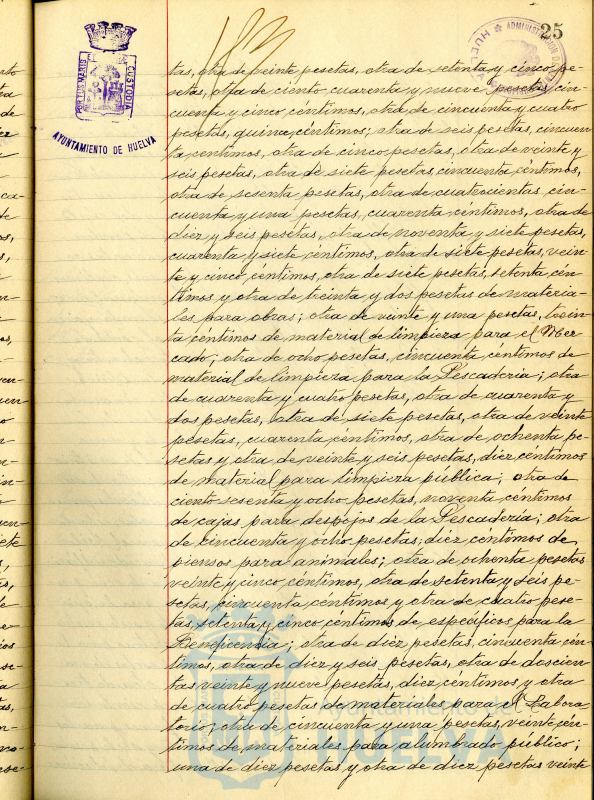 25
PORTUS MARIS CUSTODIA
AYUNTAMIENTO DE HUELVA
ADMINISTRACION
HUELVA
tas, otra de veinte pesetas, otra de setenta y cinco pe-
setas, otra de ciento cuarenta y nueve pesetas cin-
cuenta y cinco céntimos, otra de cincuenta y cuatro
pesetas, quince céntimos; otra de seis pesetas, cincuen
ta céntimos, otra de cinco pesetas, otra de veinte y
seis pesetas, otra de siete pesetas, cincuenta céntimos,
otra de sesenta pesetas, otra de cuatrocientas cin-
cuenta y una pesetas, cuarenta céntimos, otra de
diez y seis pesetas, otra de noventa y siete pesetas,
cuarenta y siete céntimos, otra de siete pesetas, vein-
te y cinco céntimos, otra de siete pesetas, setenta cén-
timos y otra de treinta y dos pesetas de materia-
les para obras; otra de veinte y una pesetas, toein
ta céntimos de material de limpieza para el Mer
cado; otra de ocho pesetas, cincuenta céntimos de
material de limpieza para la Pescadería; otra
de cuarenta y cuatro pesetas, otra de cuarenta y
dos pesetas, otra de siete pesetas, otra de veinte
pesetas, cuarenta céntimos, otra de ochenta pe-
setas y otra de veinte y seis pesetas, diez céntimos
de material para limpieza pública; otra de
ciento sesenta y ocho pesetas, noventa céntimos
de cajas para despojos de la Pescadería; otra
de cincuenta y ocho pesetas, diez céntimos de
piensos para animales; otra de ochenta pesetas
veinte y cinco céntimos, otra de setenta y seis pe-
setas, cincuenta céntimos y otra de cuatro pese-
tas, setenta y cinco céntimos de específicos para la
Beneficencia; otra de diez pesetas, cincuenta cén-
timos, otra de diez y seis pesetas, otra de doscien-
tas veinte y nueve pesetas, diez céntimos y otra
de cuatro pesetas de materiales para el Labora-
torio; otra de cincuenta y una pesetas, veinte cén-
timos de materiales para alumbrado público;
una de diez pesetas y otra de diez pesetas veinte
Ayuntamiento de
HUELVA